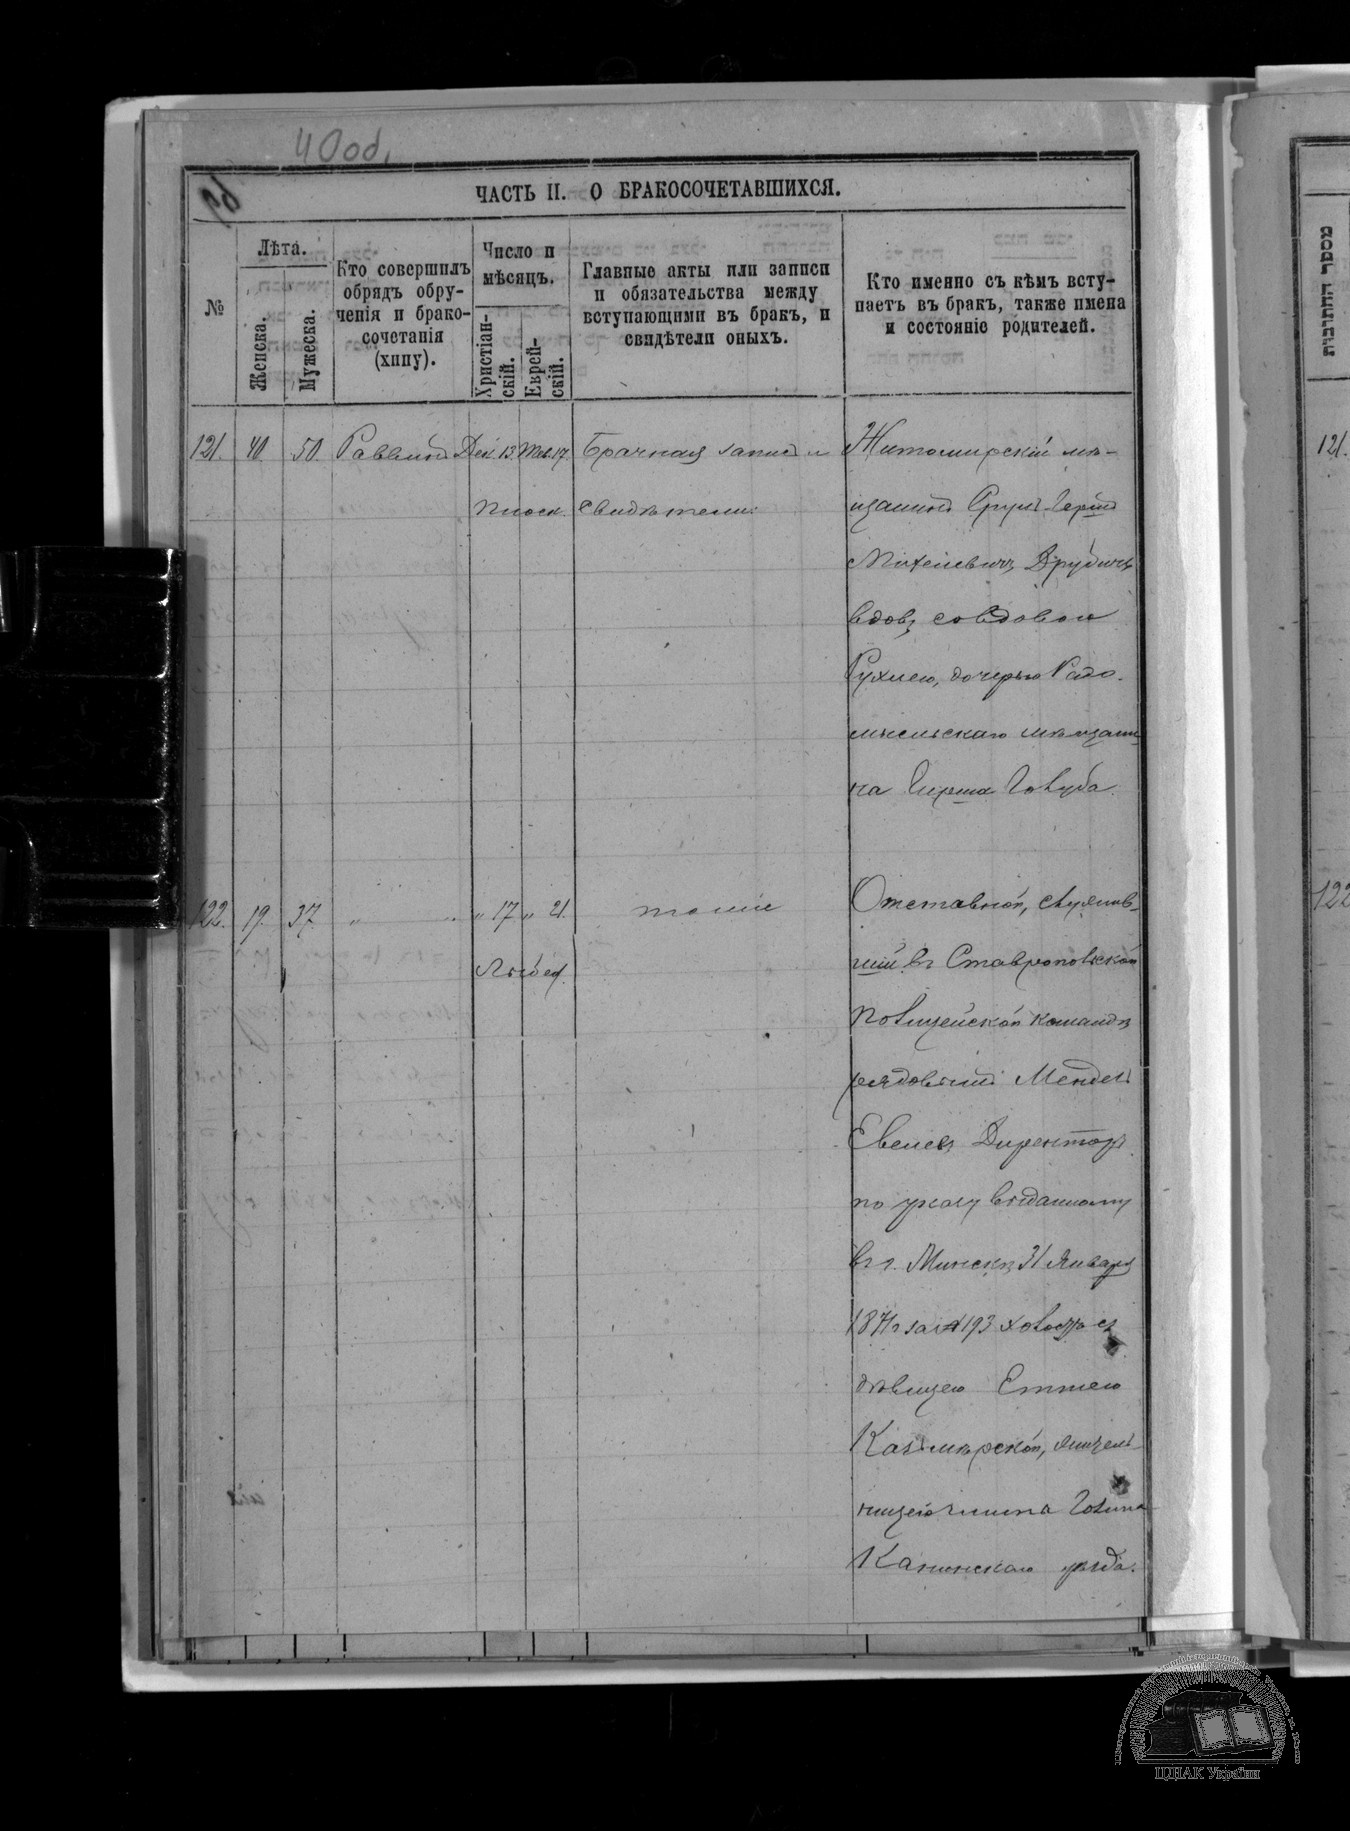 40 об.
ЧАСТЬ II. О БРАКОСОЧЕТАВШИХСЯ.
№
Лѣта.
Женска.
Мужеска.
Кто совершилъ
обрядъ обру-
ченія и брако-
сочетанія
(хипу).
Число и
мѣсяцъ.
Христіан-
скій.
Еврей-
скій.
Главные акты или записи
и обязательства между
вступающими въ бракъ, и
свидѣтели оныхъ.
Кто именно съ кѣмъ всту-
паетъ въ бракъ, также имена
и состояніе родителей.
121. 40. 50. Раввинъ Дек. 13. Тев. 17. Брачная запись и
Плоск. свидѣтели
Житомирскій мѣ-
щанинъ Сруль-Герш
Михелевичъ
вдовъ со вдовою
Рухлею, дочерью Радо-
мысльскаго мѣщани
на Гирша Голуба.
122. 19. 37. „ „ „ 17 „ 21. тоже
Лыбед.
Отставной, служив-
шій въ Ставропольской
полицейской командѣ
рядовымъ Мендель
Евелев Директоръ
по указу выданному
въ г. Минскѣ 31 Января
1871 г за № 193 холостъ съ
дѣвицею Еттею
Казимѣрской, жител-
ницею
Каневскаго уѣзда.
מספר החתונות
121.
122
ЦДІАК України